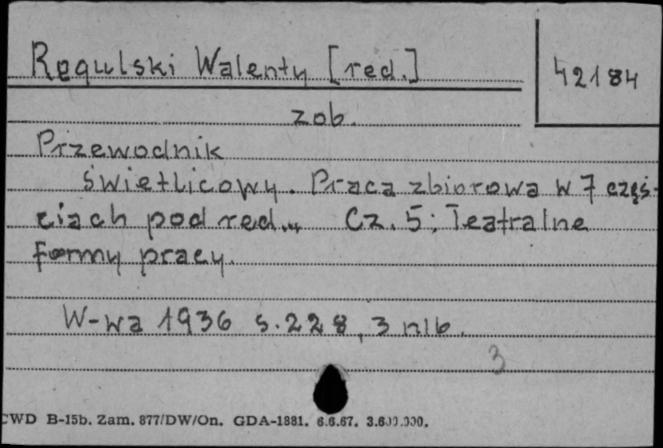 Regulski Walenty [red.]
42184
zob.
Przewodnik
świetlicowy. Praca zbiorowa w 7 częś-
ciach pod red... Cz. 5: Teatralne
formy pracy.
W-wa 1936 s. 228, 3 nlb.
3
CWD B-15b. Zam. 877/DW/On. GDA-1881. 6.6.67. 3.600.000.